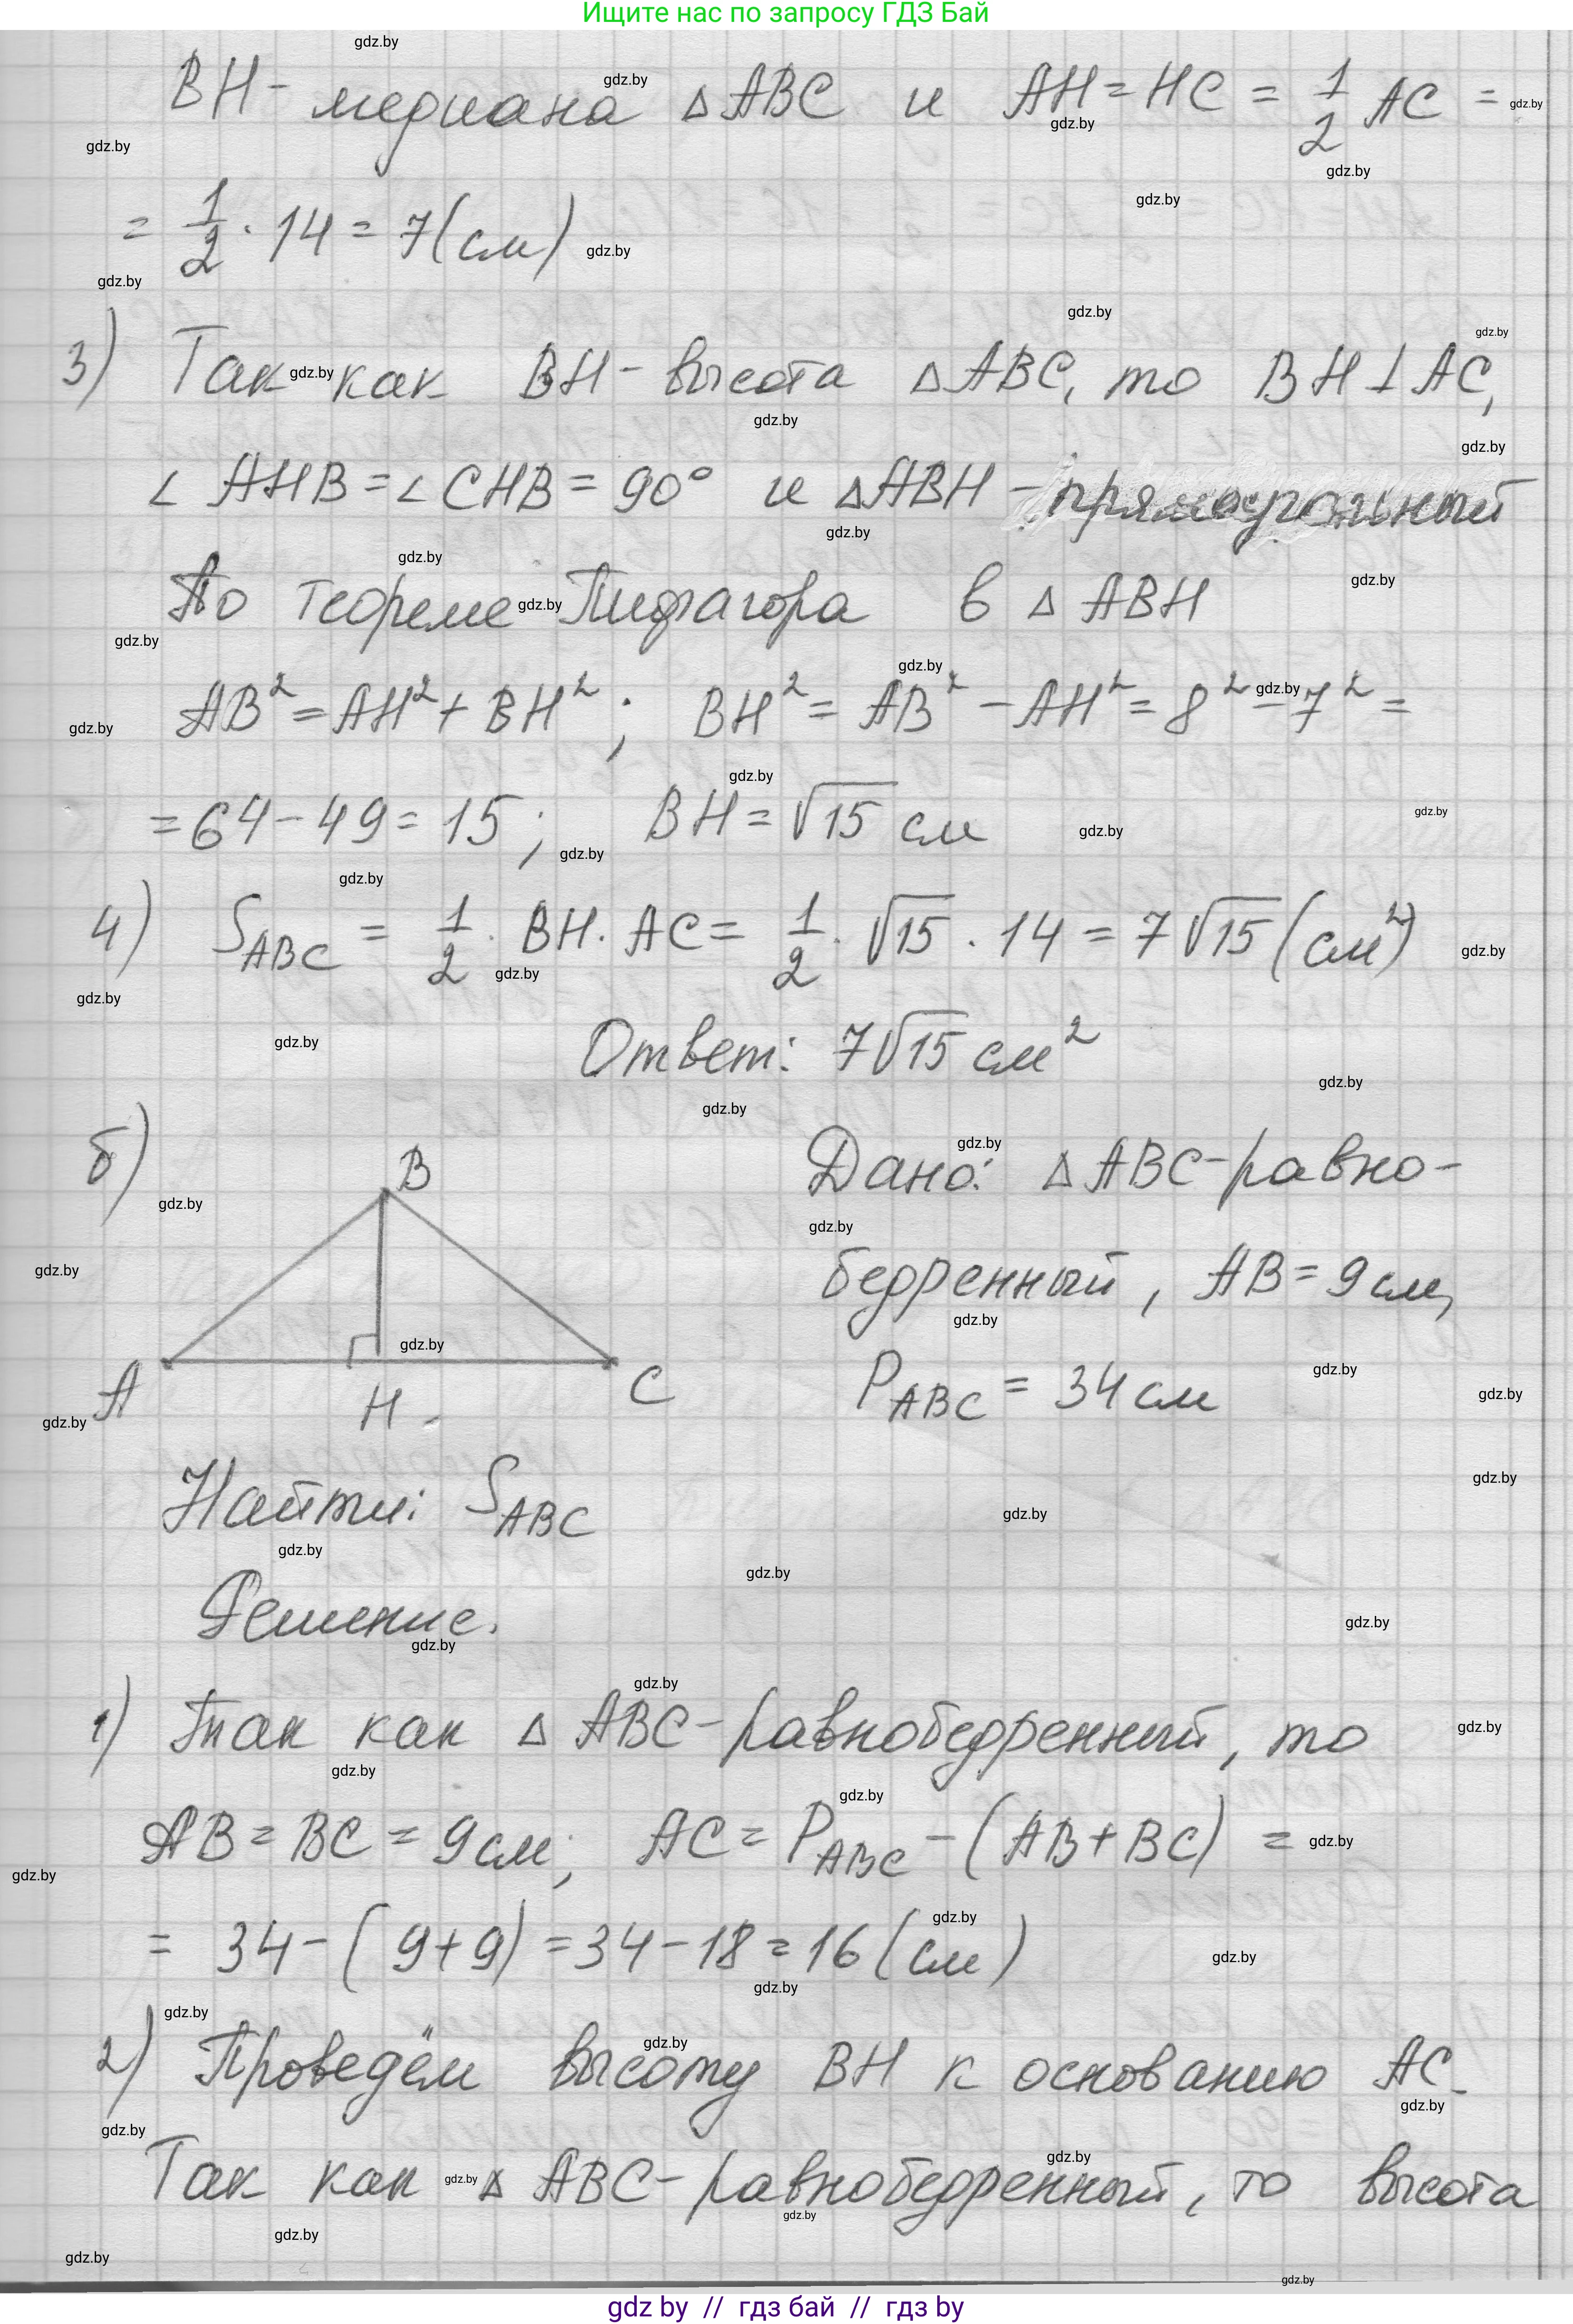 Ищите нас по запросу ГДЗ Бай
BH - медиана △ABC и AH = HC = 1/2 AC =
= 1/2 · 14 = 7 (см)
3) Так как BH - высота △ABC, то BH ⊥ AC,
∠AHB = ∠CHB = 90° и △ABH - прямоугольный
По теореме Пифагора в △ABH
AB² = AH² + BH² ; BH² = AB² - AH² = 8² - 7² =
= 64 - 49 = 15 ; BH = √15 см
4) S_ABC = 1/2 · BH · AC = 1/2 · √15 · 14 = 7√15 (см²)
Ответ: 7√15 см²
б) Дано: △ABC - равно-
бедренный, AB = 9 см,
P_ABC = 34 см
B
A
H
C
Найти: S_ABC
Решение.
1) Так как △ABC - равнобедренный, то
AB = BC = 9 см; AC = P_ABC - (AB + BC) =
= 34 - (9 + 9) = 34 - 18 = 16 (см)
2) Проведём высоту BH к основанию AC.
Так как △ABC - равнобедренный, то высота
gdz.by
gdz by // гдз бай // гдз by